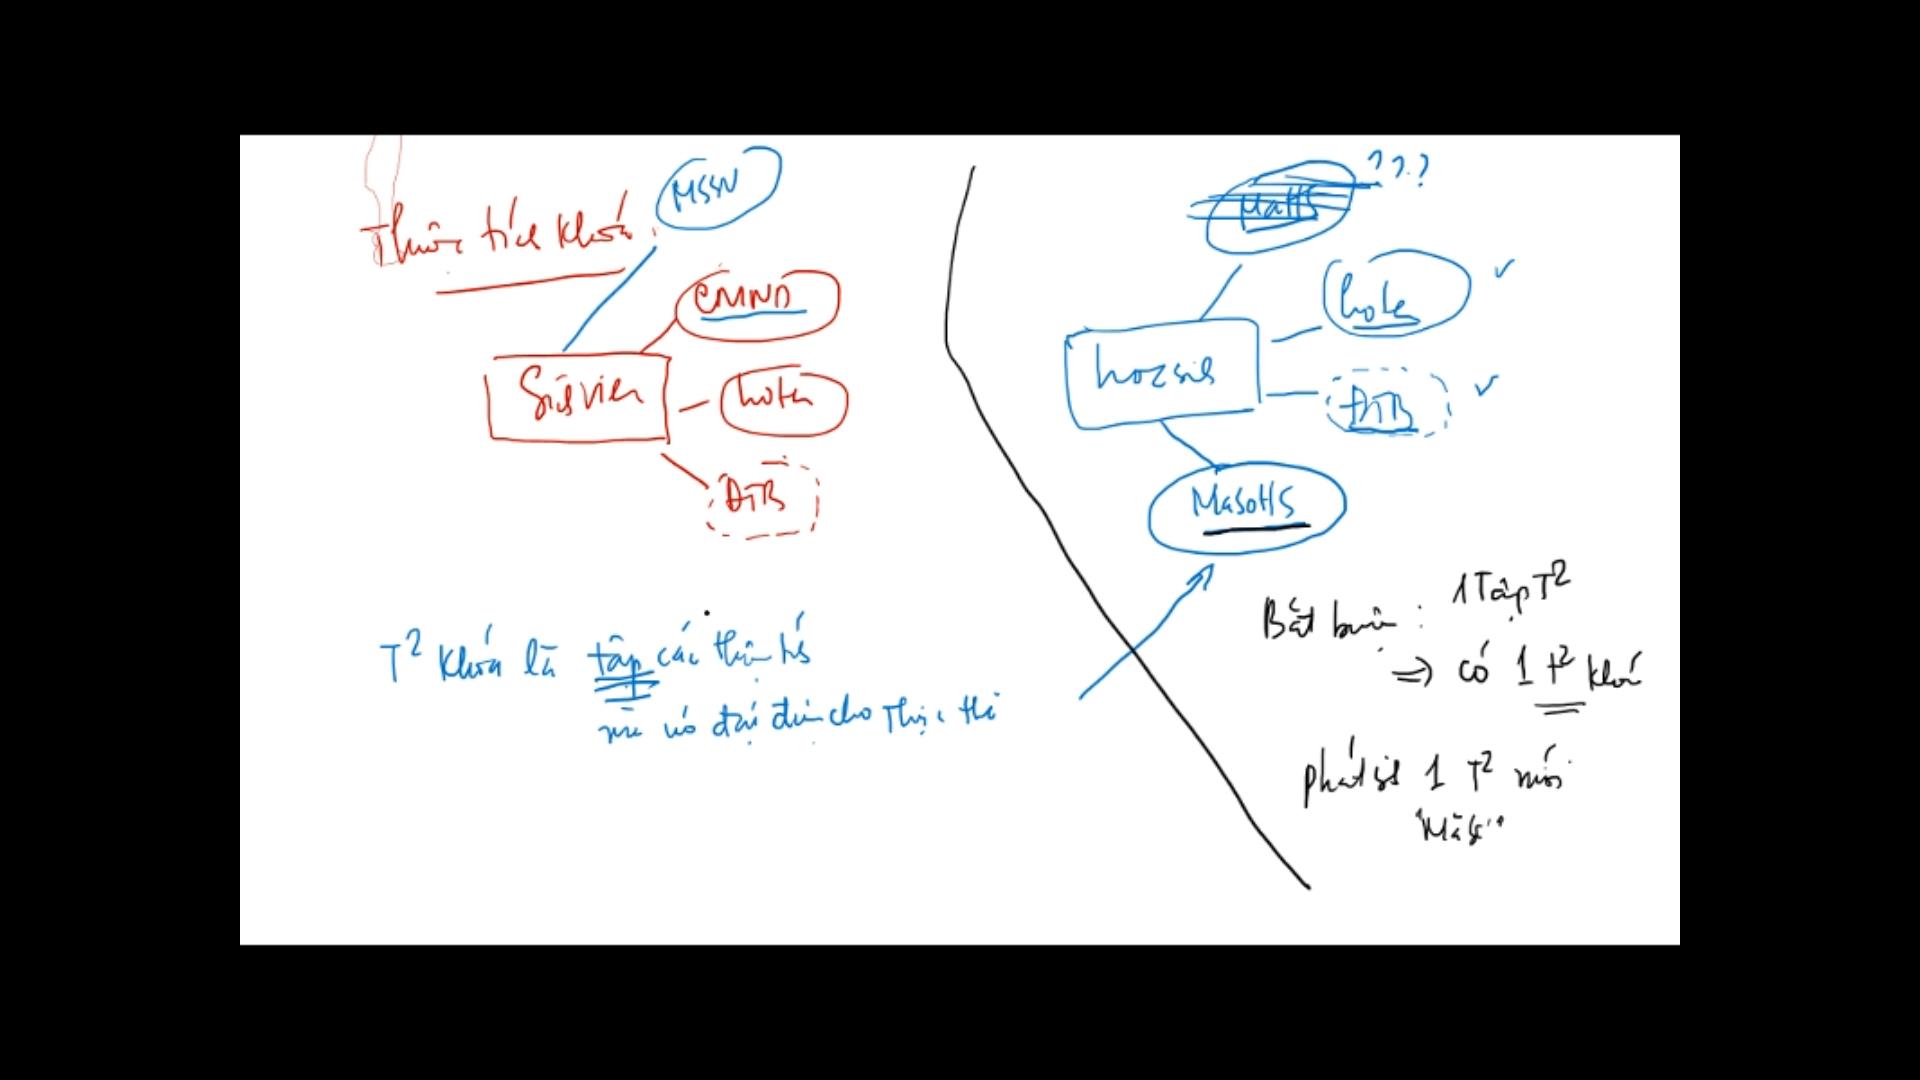 Thuộc tính khóa:
MSSV
CMND
Sinhvien
hoten
ĐTB
T² khóa là tập các thuộc tính
mà nó đại diện cho thực thể
MaHS
???
hoten
hocsinh
ĐTB
MasoHS
Bắt buộc: 1 Tập T²
=> có 1 T² khóa
phát sinh 1 T² mới
"Mã số"